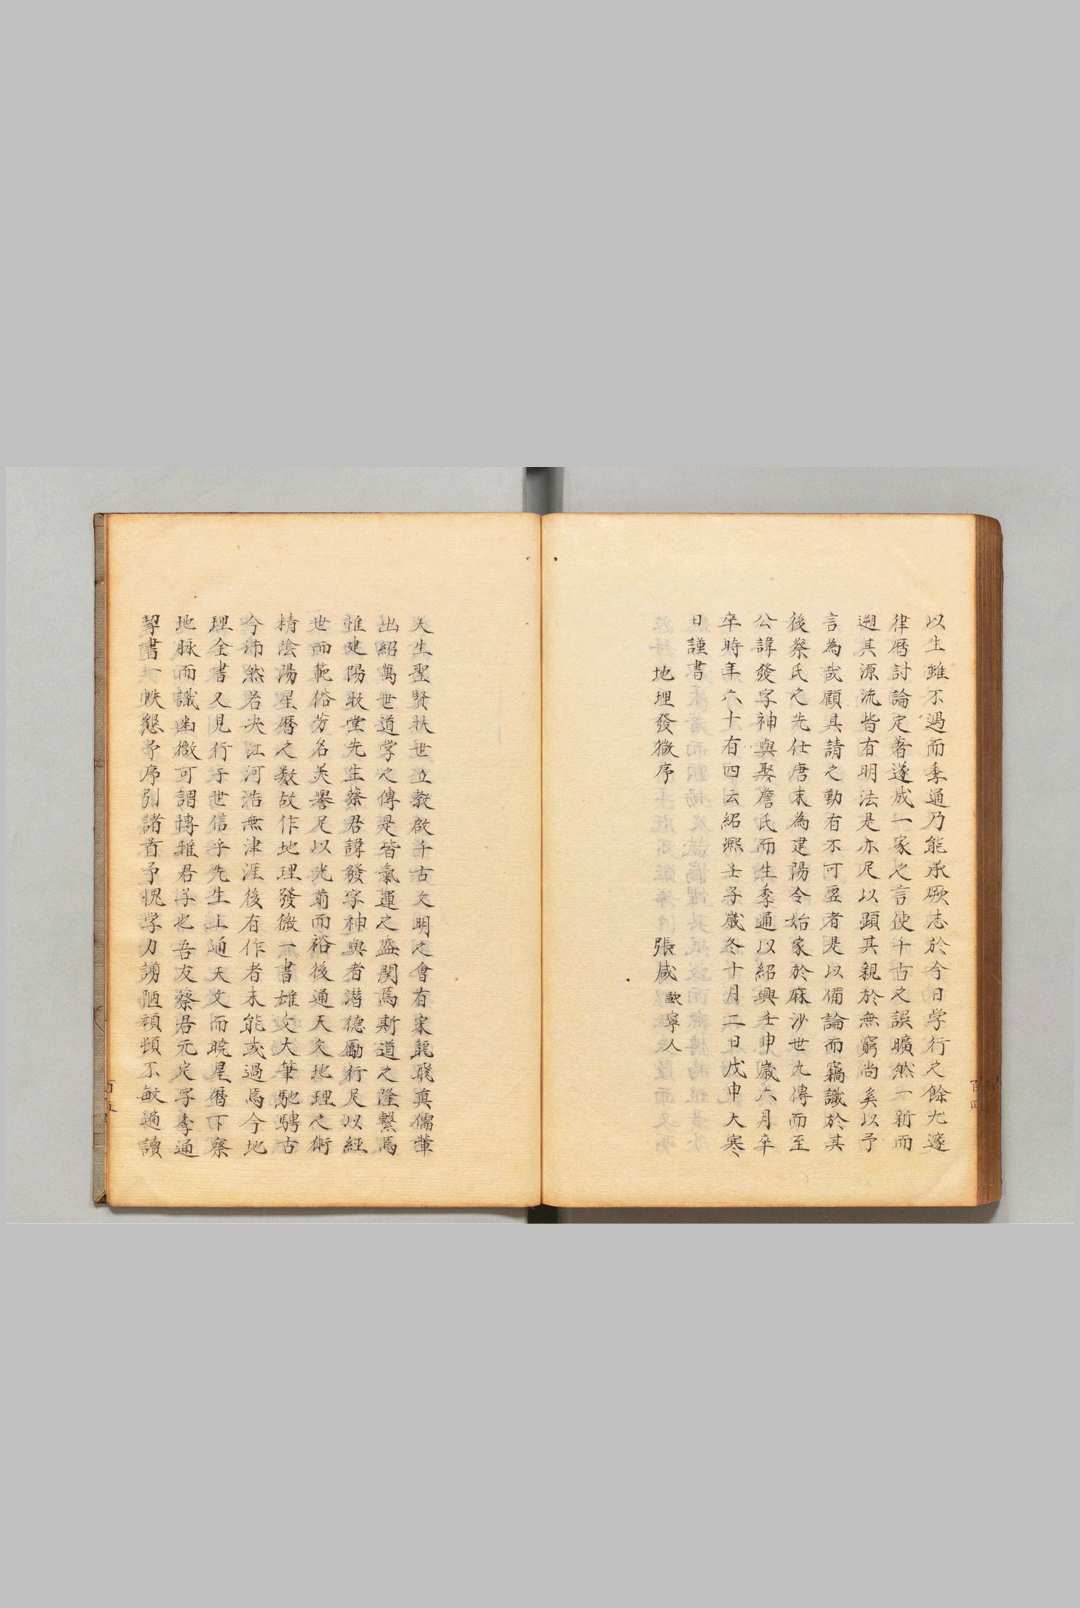 以生雖不過而季通乃能承厥志於今日学行之餘尤邃
律厯討論定著遂成一家之言使千古之誤曠然一新而
遡其源流皆有明法是亦足以顕其親於無窮尚矣以予
言為哉顧其請之勤有不可盡者是以備論而竊識於其
後蔡氏之先仕唐末為建陽令始家於麻沙世九傳而至
公諱發字神與娶詹氏而生季通以紹興壬申歲六月卒
卒時年六十有四云紹熙壬子歲冬十月二日戊申大寒
日謹書
地理發微序 張 歐寧人
天生聖賢扶世立教啟千古文明之會有宋龍飛真儒輩
出紹萬世道学之傳是皆氣運之盛関焉斯道之隆繫焉
雖建陽牧堂先生蔡君諱發字神與者潜德勵行足以經
世而範俗芳名美譽足以光前而裕後通天文地理之術
精陰陽星厯之數故作地理發微一書雄文大筆馳騁古
今沛然若决江河浩無津涯後有作者未能或過焉今地
理全書又見行于世信乎先生上通天文而晓星厯下察
地脉而識幽微可謂博雅君子也吾友蔡君元定字季通
挈書一帙懇予序引諸首予愧学力謭陋頑頓不敏遍讀